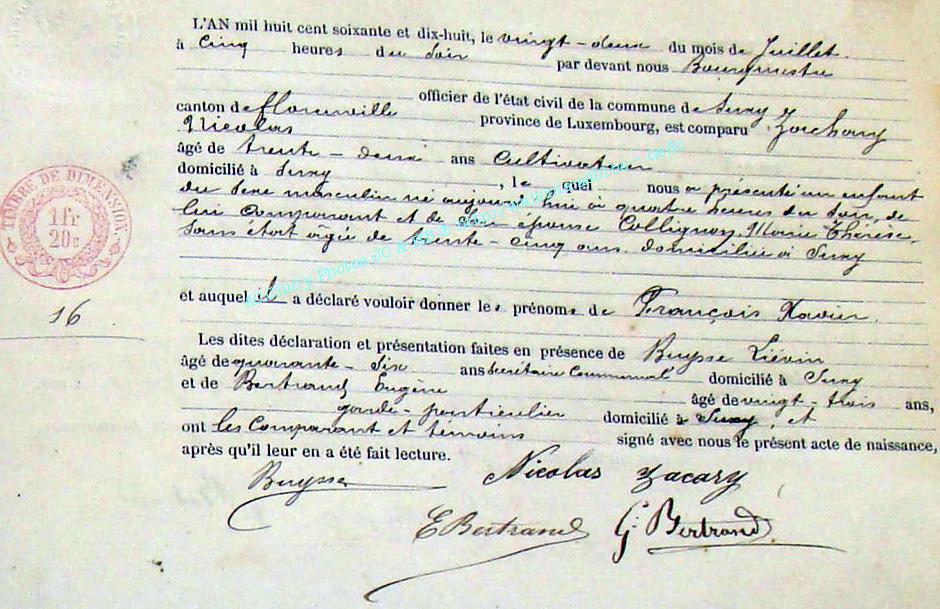 L'AN mil huit cent soixante et dix-huit, le vingt-deux du mois de Juillet
à cinq heures du soir par devant nous Bourgmestre
officier de l'état civil de la commune de Suxy
canton de florenville province de Luxembourg, est comparu Zachary
Nicolas
âgé de trente-deux ans cultivateur
domicilié à Suxy, lequel nous a présenté un enfant
du sexe masculin né aujourd'hui à quatre heures du soir, de
lui comparant et de son épouse Collignon, Marie Thérèse,
sans état âgée de trente-cinq ans domiciliée à Suxy
et auquel il a déclaré vouloir donner les prénoms de François Xavier.
Les dites déclaration et présentation faites en présence de Buysse Liévin
âgé de quarante-six ans secrétaire Communal domicilié à Suxy
et de Bertrand Eugène âgé de vingt-trois ans,
garde-particulier domicilié à Suxy, et
ont les comparant et témoins signé avec nous le présent acte de naissance,
après qu'il leur en a été fait lecture.
Buysse Nicolas Zacary
E Bertrand G. Bertrand
TIMBRE DE DIMENSION
1 Fr
20 c
16